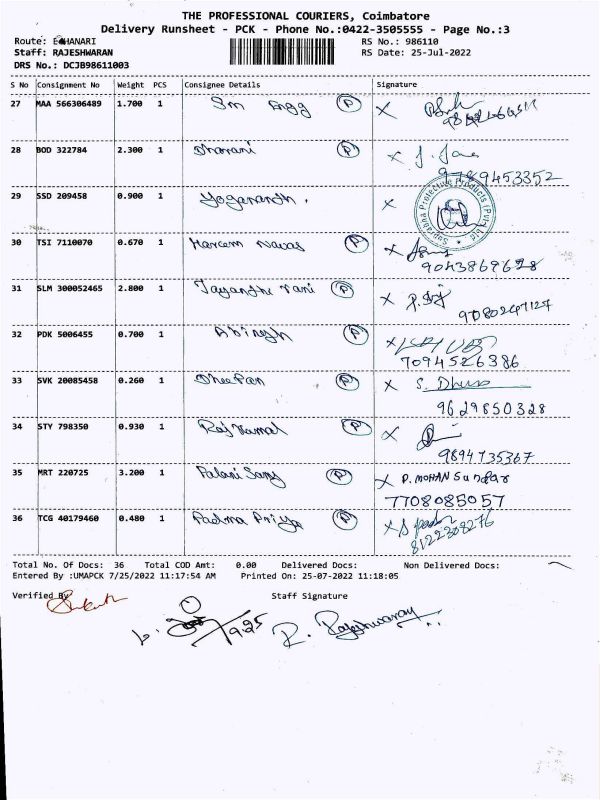 THE PROFESSIONAL COURIERS, Coimbatore
Delivery Runsheet - PCK - Phone No.:0422-3505555 - Page No.:3
Route: EHANARI RS No.: 986110
Staff: RAJESHWARAN RS Date: 25-Jul-2022
DRS No.: DCJB98611003
S No Consignment No Weight PCS Consignee Details Signature
27 MAA 566306489 1.700 1 Sm Engg P X
28 BOD 322784 2.300 1 Dharani P X
9789453352
29 SSD 209458 0.900 1 Yogananth. X
Suprabha Protective Products (Pvt) Ltd
30 TSI 7110070 0.670 1 Mareem Navas P X
9043869628
31 SLM 300052465 2.800 1 Jayanthi rani P X
9080247127
32 PDK 5006455 0.700 1 Abinesh P X
7094526386
33 SVK 20085458 0.260 1 DheePan P X S. Dhuss
9629850328
34 STY 798350 0.930 1 Raj Kamal P X
9894735367
35 MRT 220725 3.200 1 Palani Samy P X P. MOHAN Sundar
7708085057
36 TCG 40179460 0.480 1 Padma Priya P X
8122308276
Total No. Of Docs: 36 Total COD Amt: 0.00 Delivered Docs: Non Delivered Docs:
Entered By :UMAPCK 7/25/2022 11:17:54 AM Printed On: 25-07-2022 11:18:05
Verified By Staff Signature
9.25 R. Rajeshwaran